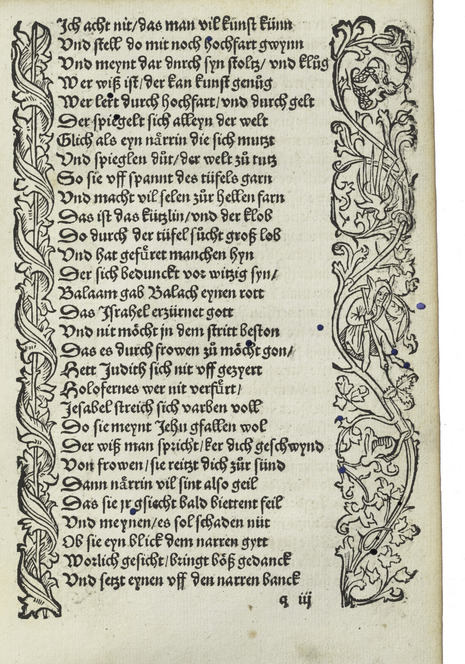 Ich acht nit/das man vil kunst künn
Vnd stell do mit noch hochfart gwynn
Vnd meynt dar durch syn stoltz/ vnd klůg
Wer wiß ist/der kan kunst genůg
Wer lert durch hochfart/vnd durch gelt
Der spiegelt sich alleyn der welt
Glich als eyn nårrin die sich mutzt
Vnd spieglen důt/der welt zů tutz
So sie vff spannt des tüfels garn
Vnd macht vil selen zůr hellen farn
Das ist das kützlin/vnd der klob
Do durch der tüfel sůcht groß lob
Vnd hat gefůret manchen hyn
Der sich bedunckt vor witzig syn/
Balaam gab Balach eynen rott
Das Jsrahel erzürnet gott
Vnd nit möcht jn dem stritt beston
Das es durch frowen zů möcht gon/
Hett Judith sich nit vff gezyert
Holofernes wer nit verfůrt/
Jesabel streich sich varben voll
Do sie meynt Jehu gfallen wol
Der wiß man spricht/ker dich geschwynd
Von frowen/sie reitzt dich zůr sünd
Dann nårrin vil sint also geil
Das sie jr gsiecht bald biettent feil
Vnd meynen/es sol schaden nüt
Ob sie eyn blick dem narren gytt
Worlich gesicht/bringt böß gedanck
Vnd setzt eynen vff den narren banck
q iij